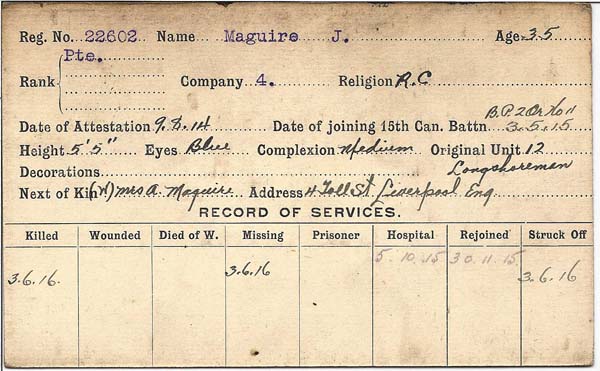 Reg. No. 22602 Name Maguire J. Age 35
Pte.
Rank Company 4. Religion R.C
B.P.2 Or No 11
Date of Attestation 9.8.14 Date of joining 15th Can. Battn 3.5.15
Height 5'5" Eyes Blue Complexion Medium Original Unit 12
Decorations Longshoreman
Next of Kin (W) Mrs A. Maguire Address 4 Toll St Liverpool Eng
RECORD OF SERVICES.
Killed Wounded Died of W. Missing Prisoner Hospital Rejoined Struck Off
5.10.15 30.11.15
3.6.16. 3.6.16 3.6.16